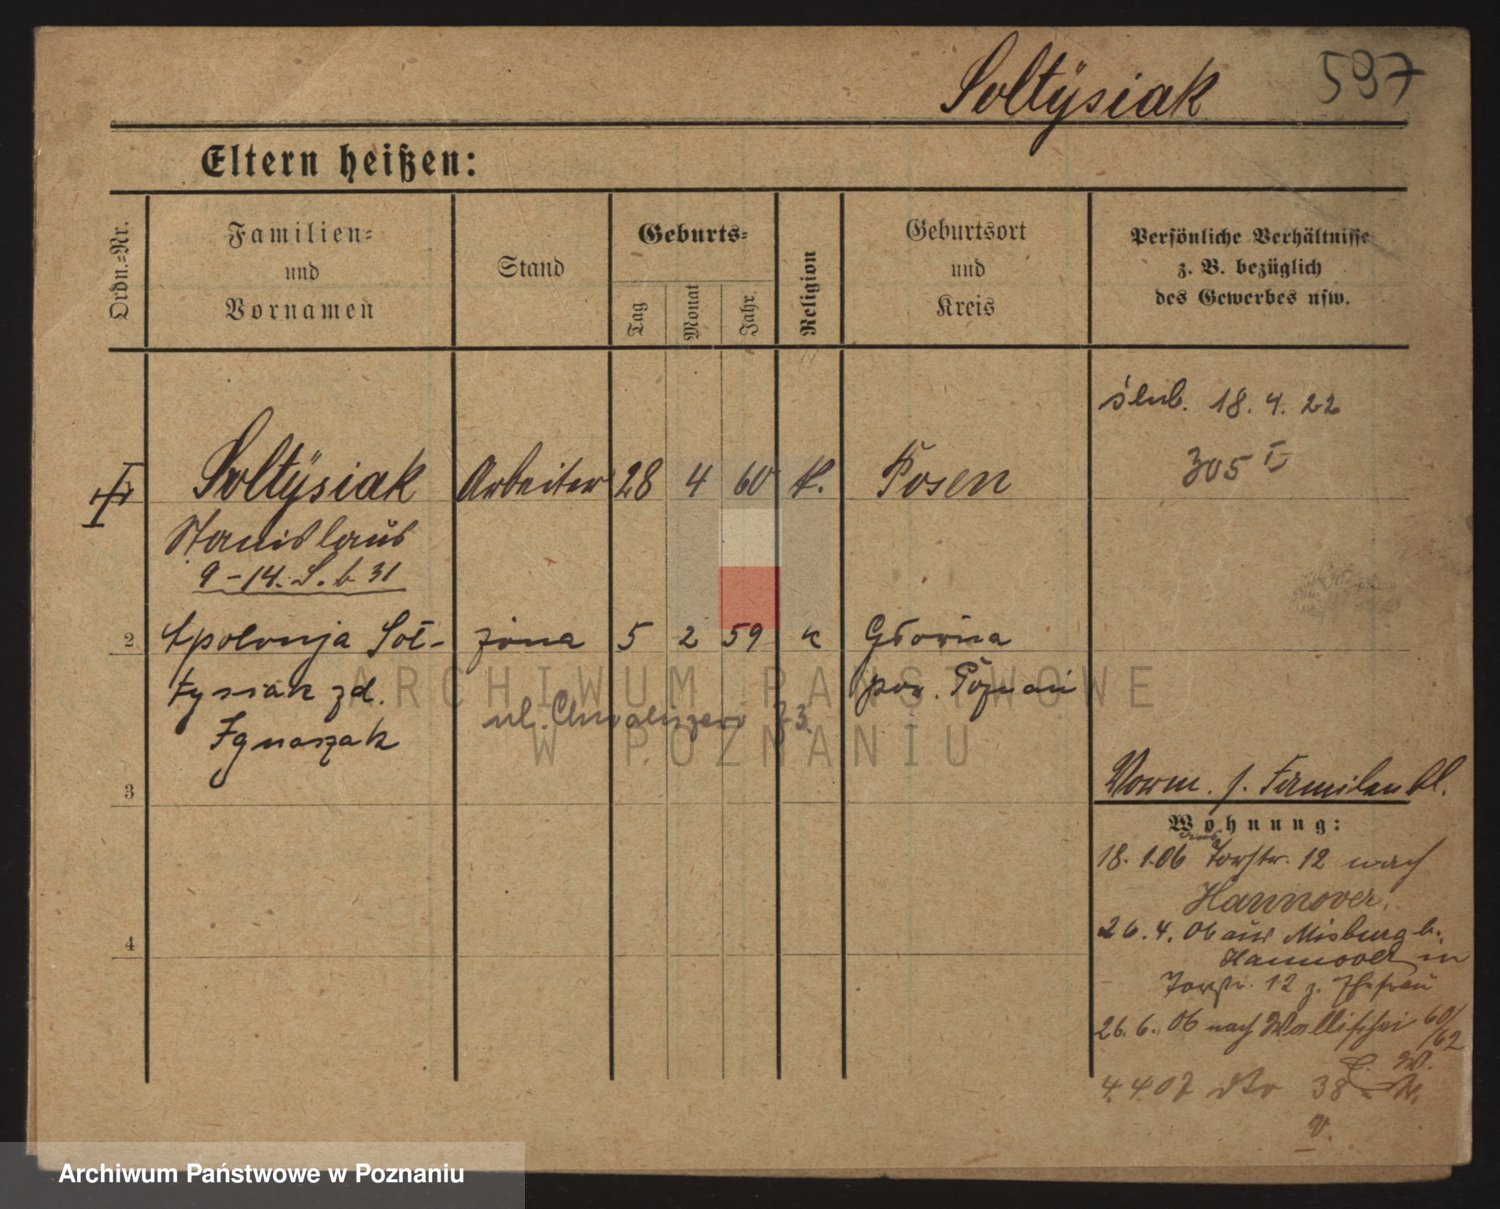 Soltÿsiak 597
Eltern heißen:
Ordn.-Nr.
Familien-
und
Vornamen
Stand
Geburts-
Tag
Monat
Jahr
Religion
Geburtsort
und
Kreis
Persönliche Verhältnisse
z. B. bezüglich
des Gewerbes usw.
ślub. 18. 4. 22
305
Soltÿsiak Arbeiter 28 4 60 k. Posen
Stanislaus
9-14. S. b 31
2 Apolonja Soł- żona 5 2 59 k Główna
tysiak zd. pow. Poznań
Ignaszak
ul. Chwaliszewo 73.
3
4
Vorm. s. Familienbl.
Wohnung:
18. 1.06 Torstr. 12 nach
Hannover.
26. 4. 06 aus Misburg b.
Hannover in
Torstr. 12 z. Ehefrau
26. 6. 06 nach Wallischei 60/62
4. 4 07 dto 38
V.
ARCHIWUM PAŃSTWOWE
W POZNANIU
Archiwum Państwowe w Poznaniu